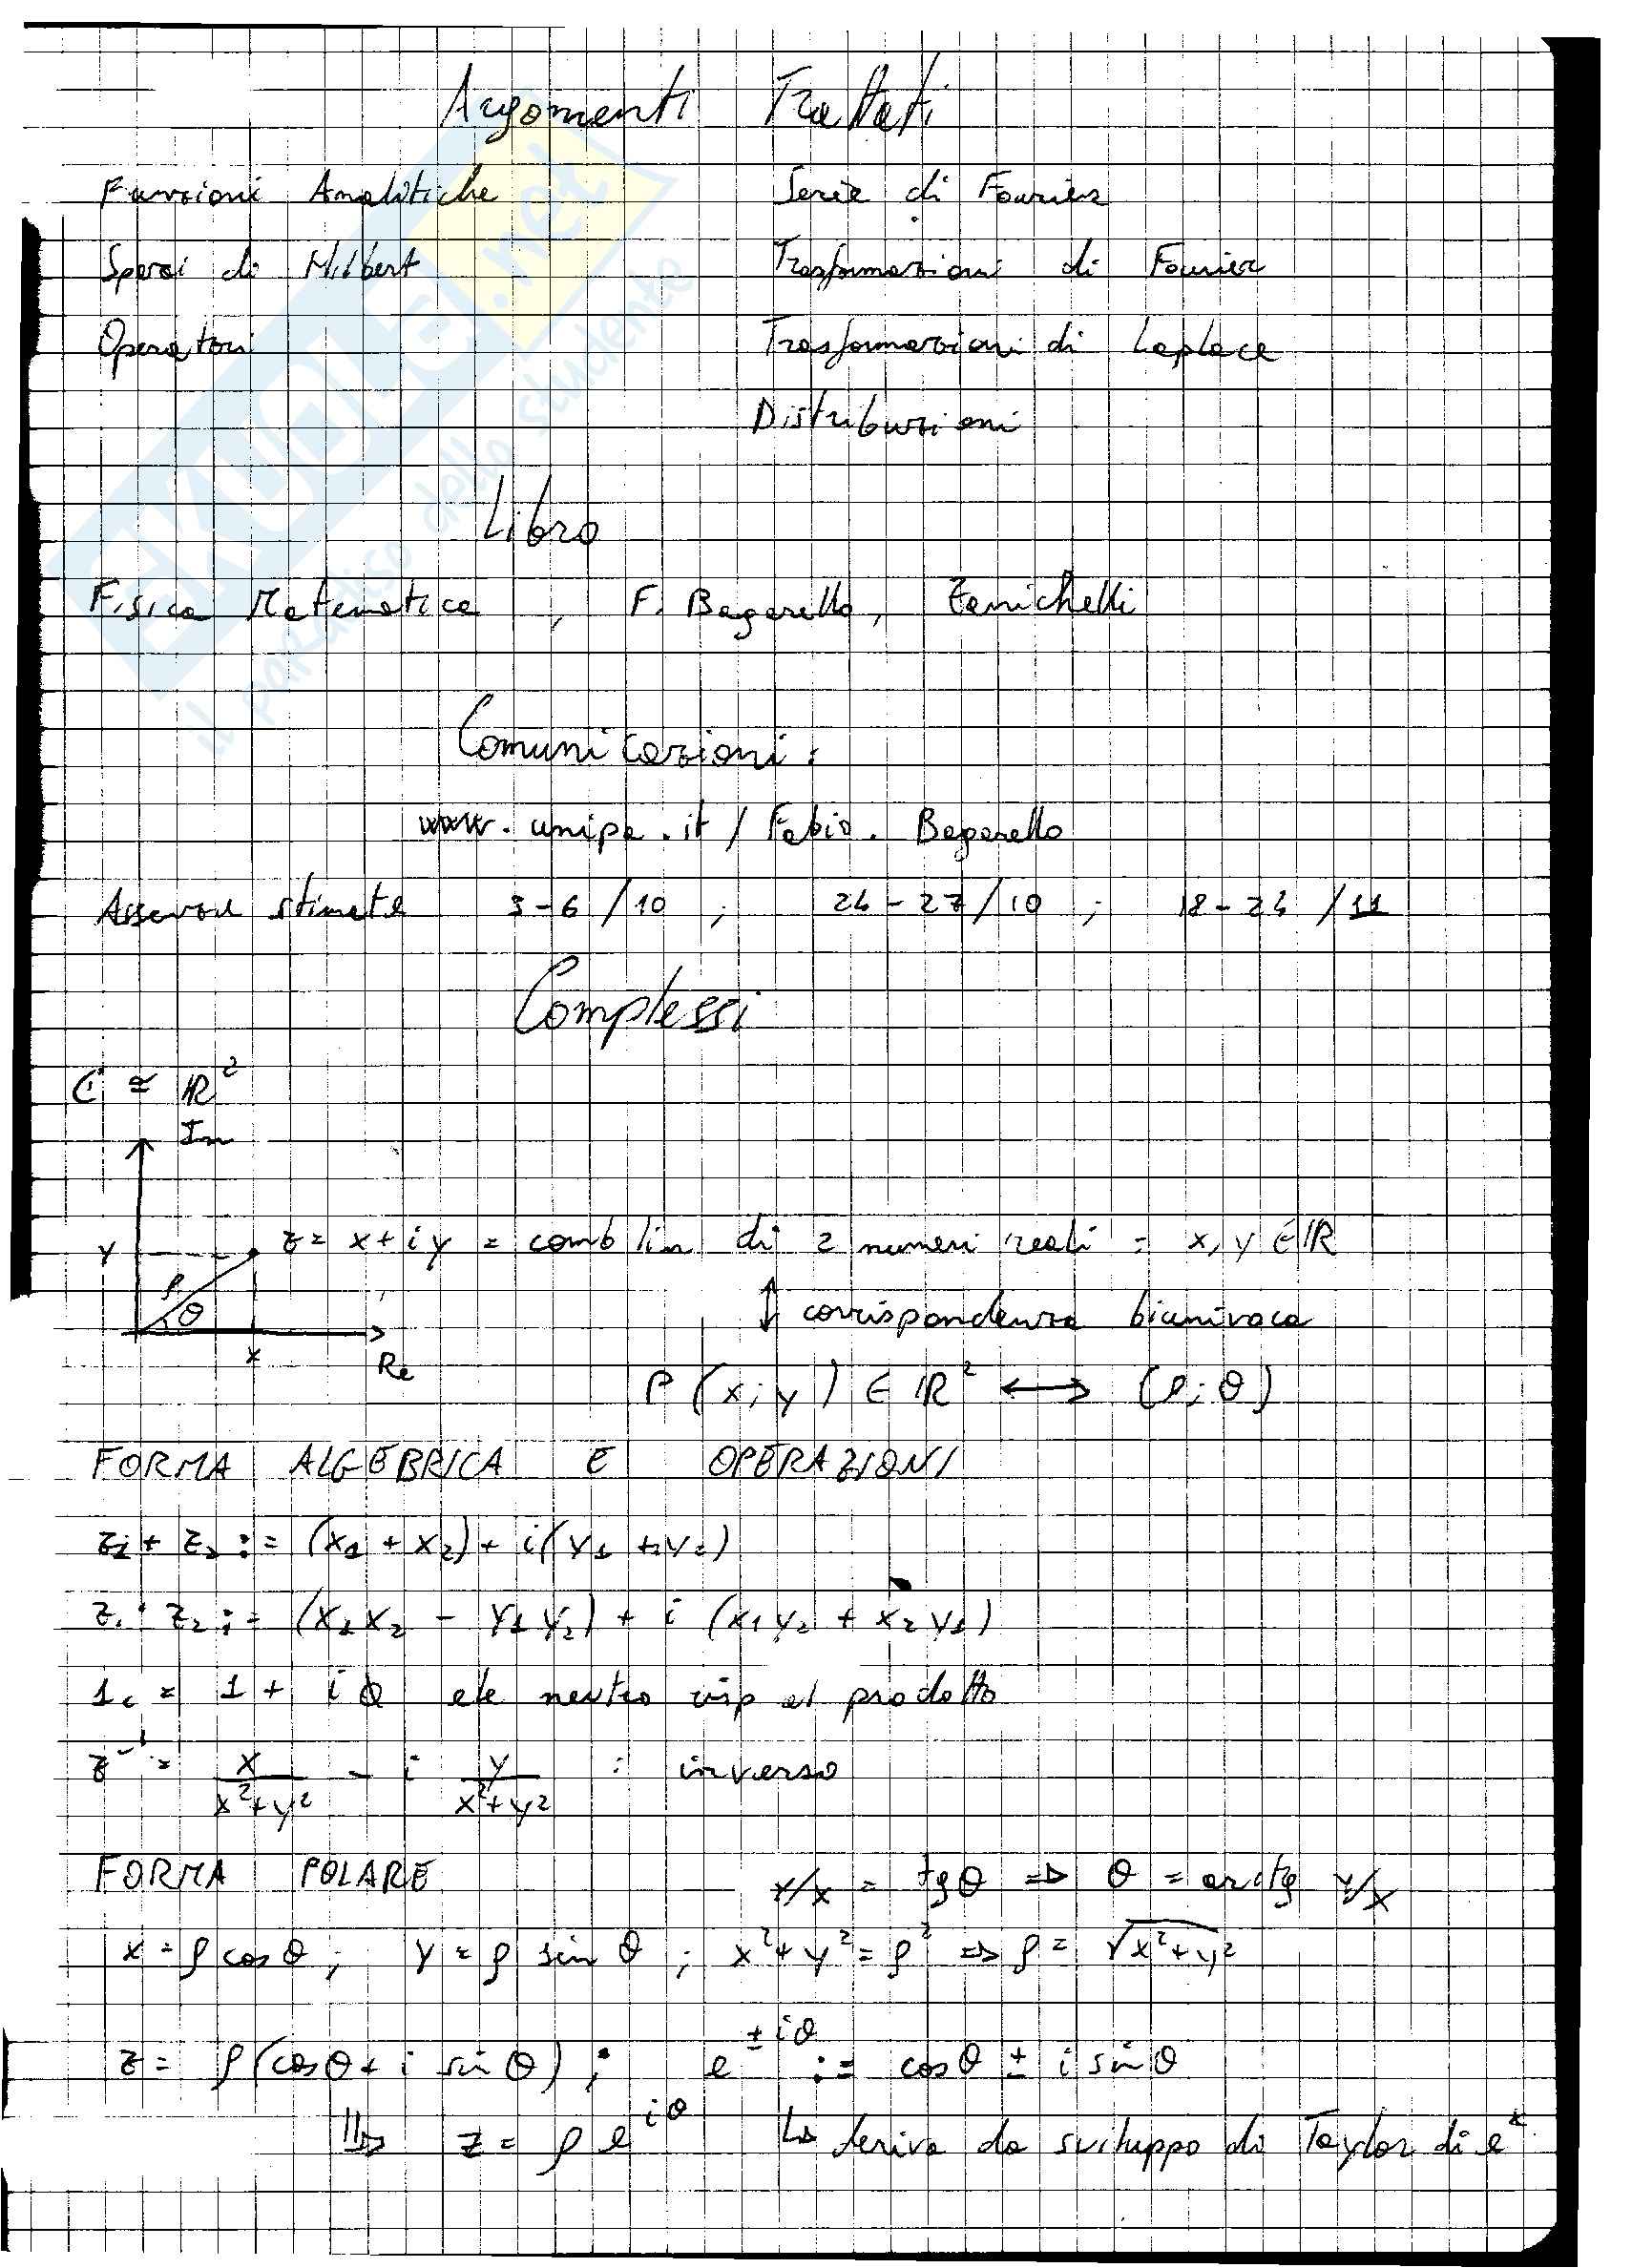 Argomenti Trattati
Funzioni Analitiche Serie di Fourier
Spazi di Hilbert Trasformazioni di Fourier
Operatori Trasformazioni di Laplace
Distribuzioni
Libro
Fisica Matematica, F. Bagarello, Zanichelli
Comunicazioni:
www.unipa.it/Fabio.Bagarello
Assenze stimate 3-6/10; 24-27/10; 18-24/11
Complessi
ℂ ≅ ℝ²
Im
y z = x + iy = comb lin di 2 numeri reali : x, y ∈ ℝ
ρ θ ↕ corrispondenza biunivoca
x Re
P(x;y) ∈ ℝ² ⟷ (ρ;θ)
FORMA ALGEBRICA E OPERAZIONI
z₁ + z₂ := (x₁ + x₂) + i(y₁ + y₂)
z₁ · z₂ := (x₁x₂ - y₁y₂) + i (x₁y₂ + x₂y₁)
1c = 1 + i0 ele neutro risp al prodotto
z⁻¹ = x/(x²+y²) - i y/(x²+y²) : inverso
FORMA POLARE y/x = tgθ ⇒ θ = arctg y/x
x = ρ cosθ; y = ρ sinθ; x² + y² = ρ² ⇒ ρ = √(x²+y²)
z = ρ(cosθ + i sinθ); e^(±iθ) := cosθ ± i sinθ
⇒ z = ρ e^(iθ) ↳ deriva da sviluppo di Taylor di eˣ
SKUOLA.net
il paradiso dello studente